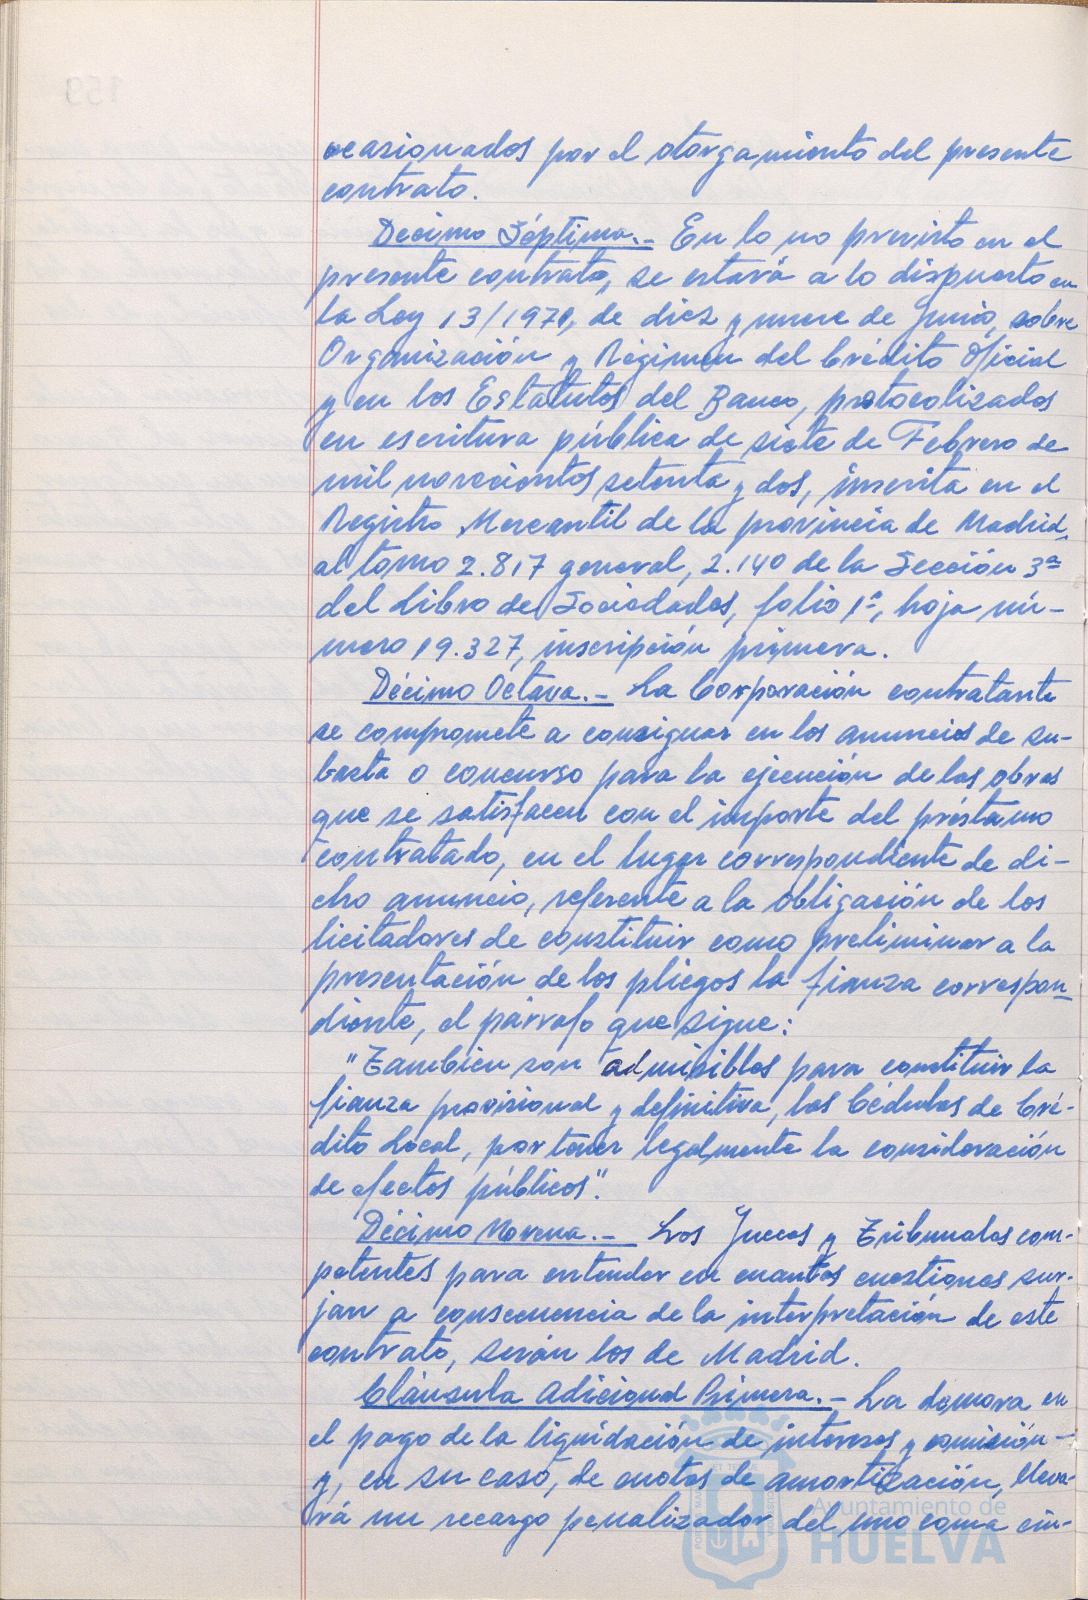 ocasionados por el otorgamiento del presente
contrato.
Décimo Séptima.- En lo no previsto en el
presente contrato, se estará a lo dispuesto en
la Ley 13/1971, de diez y nueve de Junio, sobre
Organización y Régimen del Crédito Oficial
y en los Estatutos del Banco, protocolizados
en escritura pública de siete de Febrero de
mil novecientos setenta y dos, inscrita en el
Registro Mercantil de la provincia de Madrid,
al tomo 2.817 general, 2.140 de la Sección 3ª
del Libro de Sociedades, folio 1º, hoja nú-
mero 19.327, inscripción primera.
Décimo Octava.- La Corporación contratante
se compromete a consignar en los anuncios de su-
basta o concurso para la ejecución de las obras
que se satisfacen con el importe del préstamo
contratado, en el lugar correspondiente de di-
cho anuncio, referente a la obligación de los
licitadores de constituir como preliminar a la
presentación de los pliegos la fianza correspon-
diente, el párrafo que sigue:
"Tambien son admisibles para constituir la
fianza provisional y definitiva, las Cédulas de Cré-
dito Local, por tener legalmente la consideración
de efectos públicos".
Décimo Novena.- Los Jueces y Tribunales com-
petentes para entender en cuantas cuestiones sur-
jan a consecuencia de la interpretación de este
contrato, serán los de Madrid.
Cláusula Adicional Primera.- La demora en
el pago de la liquidación de intereses y comisión
y, en su caso, de cuotas de amortización, lleva-
rá un recargo penalizador del uno coma cin-
Ayuntamiento de
HUELVA
159